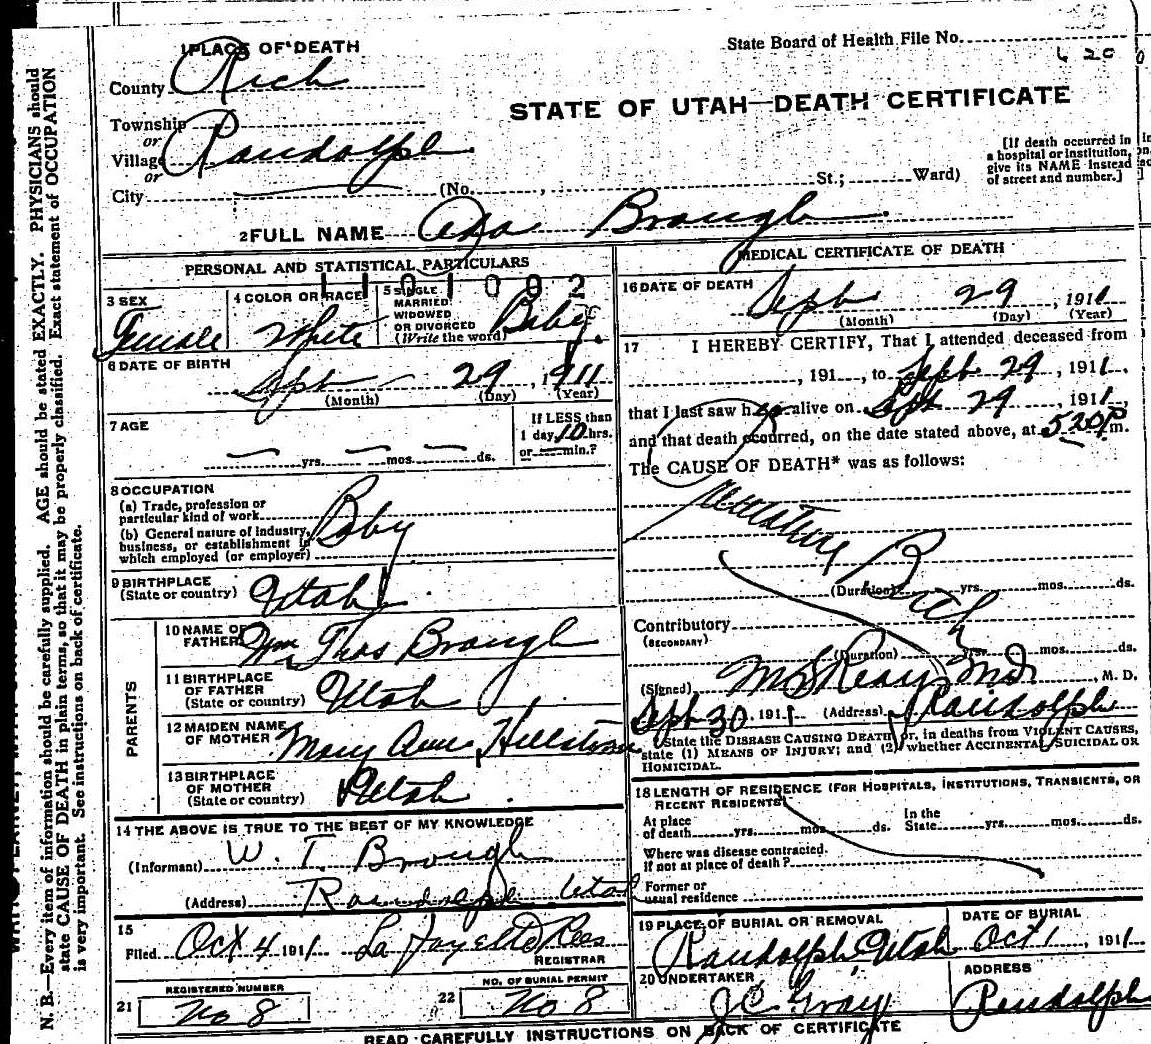 1 PLACE OF DEATH
State Board of Health File No.
County Rich
STATE OF UTAH—DEATH CERTIFICATE
Township
or
Village Randolph
or
City (No. , St.; Ward)
[If death occurred in
a hospital or institution,
give its NAME instead
of street and number.]
2 FULL NAME Ada Brough
PERSONAL AND STATISTICAL PARTICULARS
1101002
3 SEX
Female
4 COLOR OR RACE
White
5 SINGLE
MARRIED
WIDOWED
OR DIVORCED
(Write the word) Baby
6 DATE OF BIRTH
Sept 29, 1911
(Month) (Day) (Year)
7 AGE
yrs. mos. ds.
If LESS than
1 day, 10 hrs.
or min.?
8 OCCUPATION
(a) Trade, profession or
particular kind of work
(b) General nature of industry,
business, or establishment in
which employed (or employer)
Baby
9 BIRTHPLACE
(State or country) Utah
PARENTS
10 NAME OF
FATHER Wm Thos Brough
11 BIRTHPLACE
OF FATHER
(State or country) Utah
12 MAIDEN NAME
OF MOTHER Mary Ann
13 BIRTHPLACE
OF MOTHER
(State or country) Utah
14 THE ABOVE IS TRUE TO THE BEST OF MY KNOWLEDGE
(Informant) W. T. Brough
(Address) Randolph Utah
15
Filed Oct 4 1911 La Fayette Rees
REGISTRAR
REGISTERED NUMBER
21 No 8
NO. OF BURIAL PERMIT
22 No 8
MEDICAL CERTIFICATE OF DEATH
16 DATE OF DEATH
Sept 29, 1911
(Month) (Day) (Year)
17 I HEREBY CERTIFY, That I attended deceased from
, 191 , to Sept 29, 1911,
that I last saw her alive on Sept 29, 1911,
and that death occurred, on the date stated above, at 5 20 P m.
The CAUSE OF DEATH* was as follows:
(Duration) yrs. mos. ds.
Contributory
(SECONDARY)
(Duration) yrs. mos. ds.
(Signed) , M. D.
Sept 30, 1911 (Address) Randolph
*State the DISEASE CAUSING DEATH or, in deaths from VIOLENT CAUSES,
state (1) MEANS OF INJURY; and (2) whether ACCIDENTAL, SUICIDAL OR
HOMICIDAL.
18 LENGTH OF RESIDENCE (FOR HOSPITALS, INSTITUTIONS, TRANSIENTS, OR
RECENT RESIDENTS)
At place
of death yrs. mos. ds.
In the
State yrs. mos. ds.
Where was disease contracted,
if not at place of death?
Former or
usual residence
19 PLACE OF BURIAL OR REMOVAL
Randolph, Utah
DATE OF BURIAL
Oct 1, 1911
20 UNDERTAKER
J C Gray
ADDRESS
Randolph
READ CAREFULLY INSTRUCTIONS ON BACK OF CERTIFICATE
N. B.—Every item of information should be carefully supplied. AGE should be stated EXACTLY. PHYSICIANS should
state CAUSE OF DEATH in plain terms, so that it may be properly classified. Exact statement of OCCUPATION
is very important. See instructions on back of certificate.